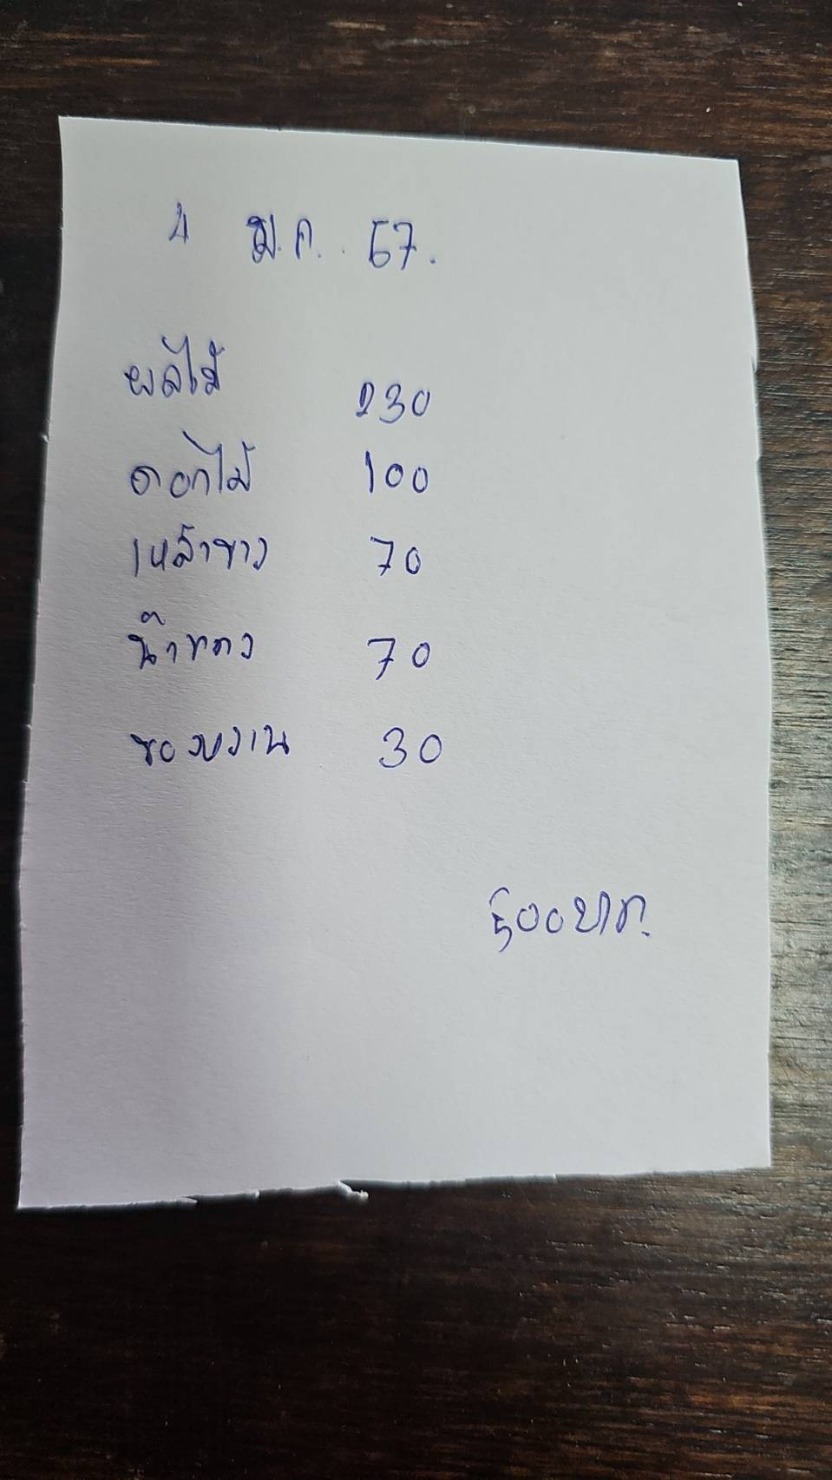 4 ม.ค. 67.
ผลไม้ 230
ดอกไม้ 100
เหล้าขาว 70
น้ำแดง 70
ของหวาน 30
500บาท.